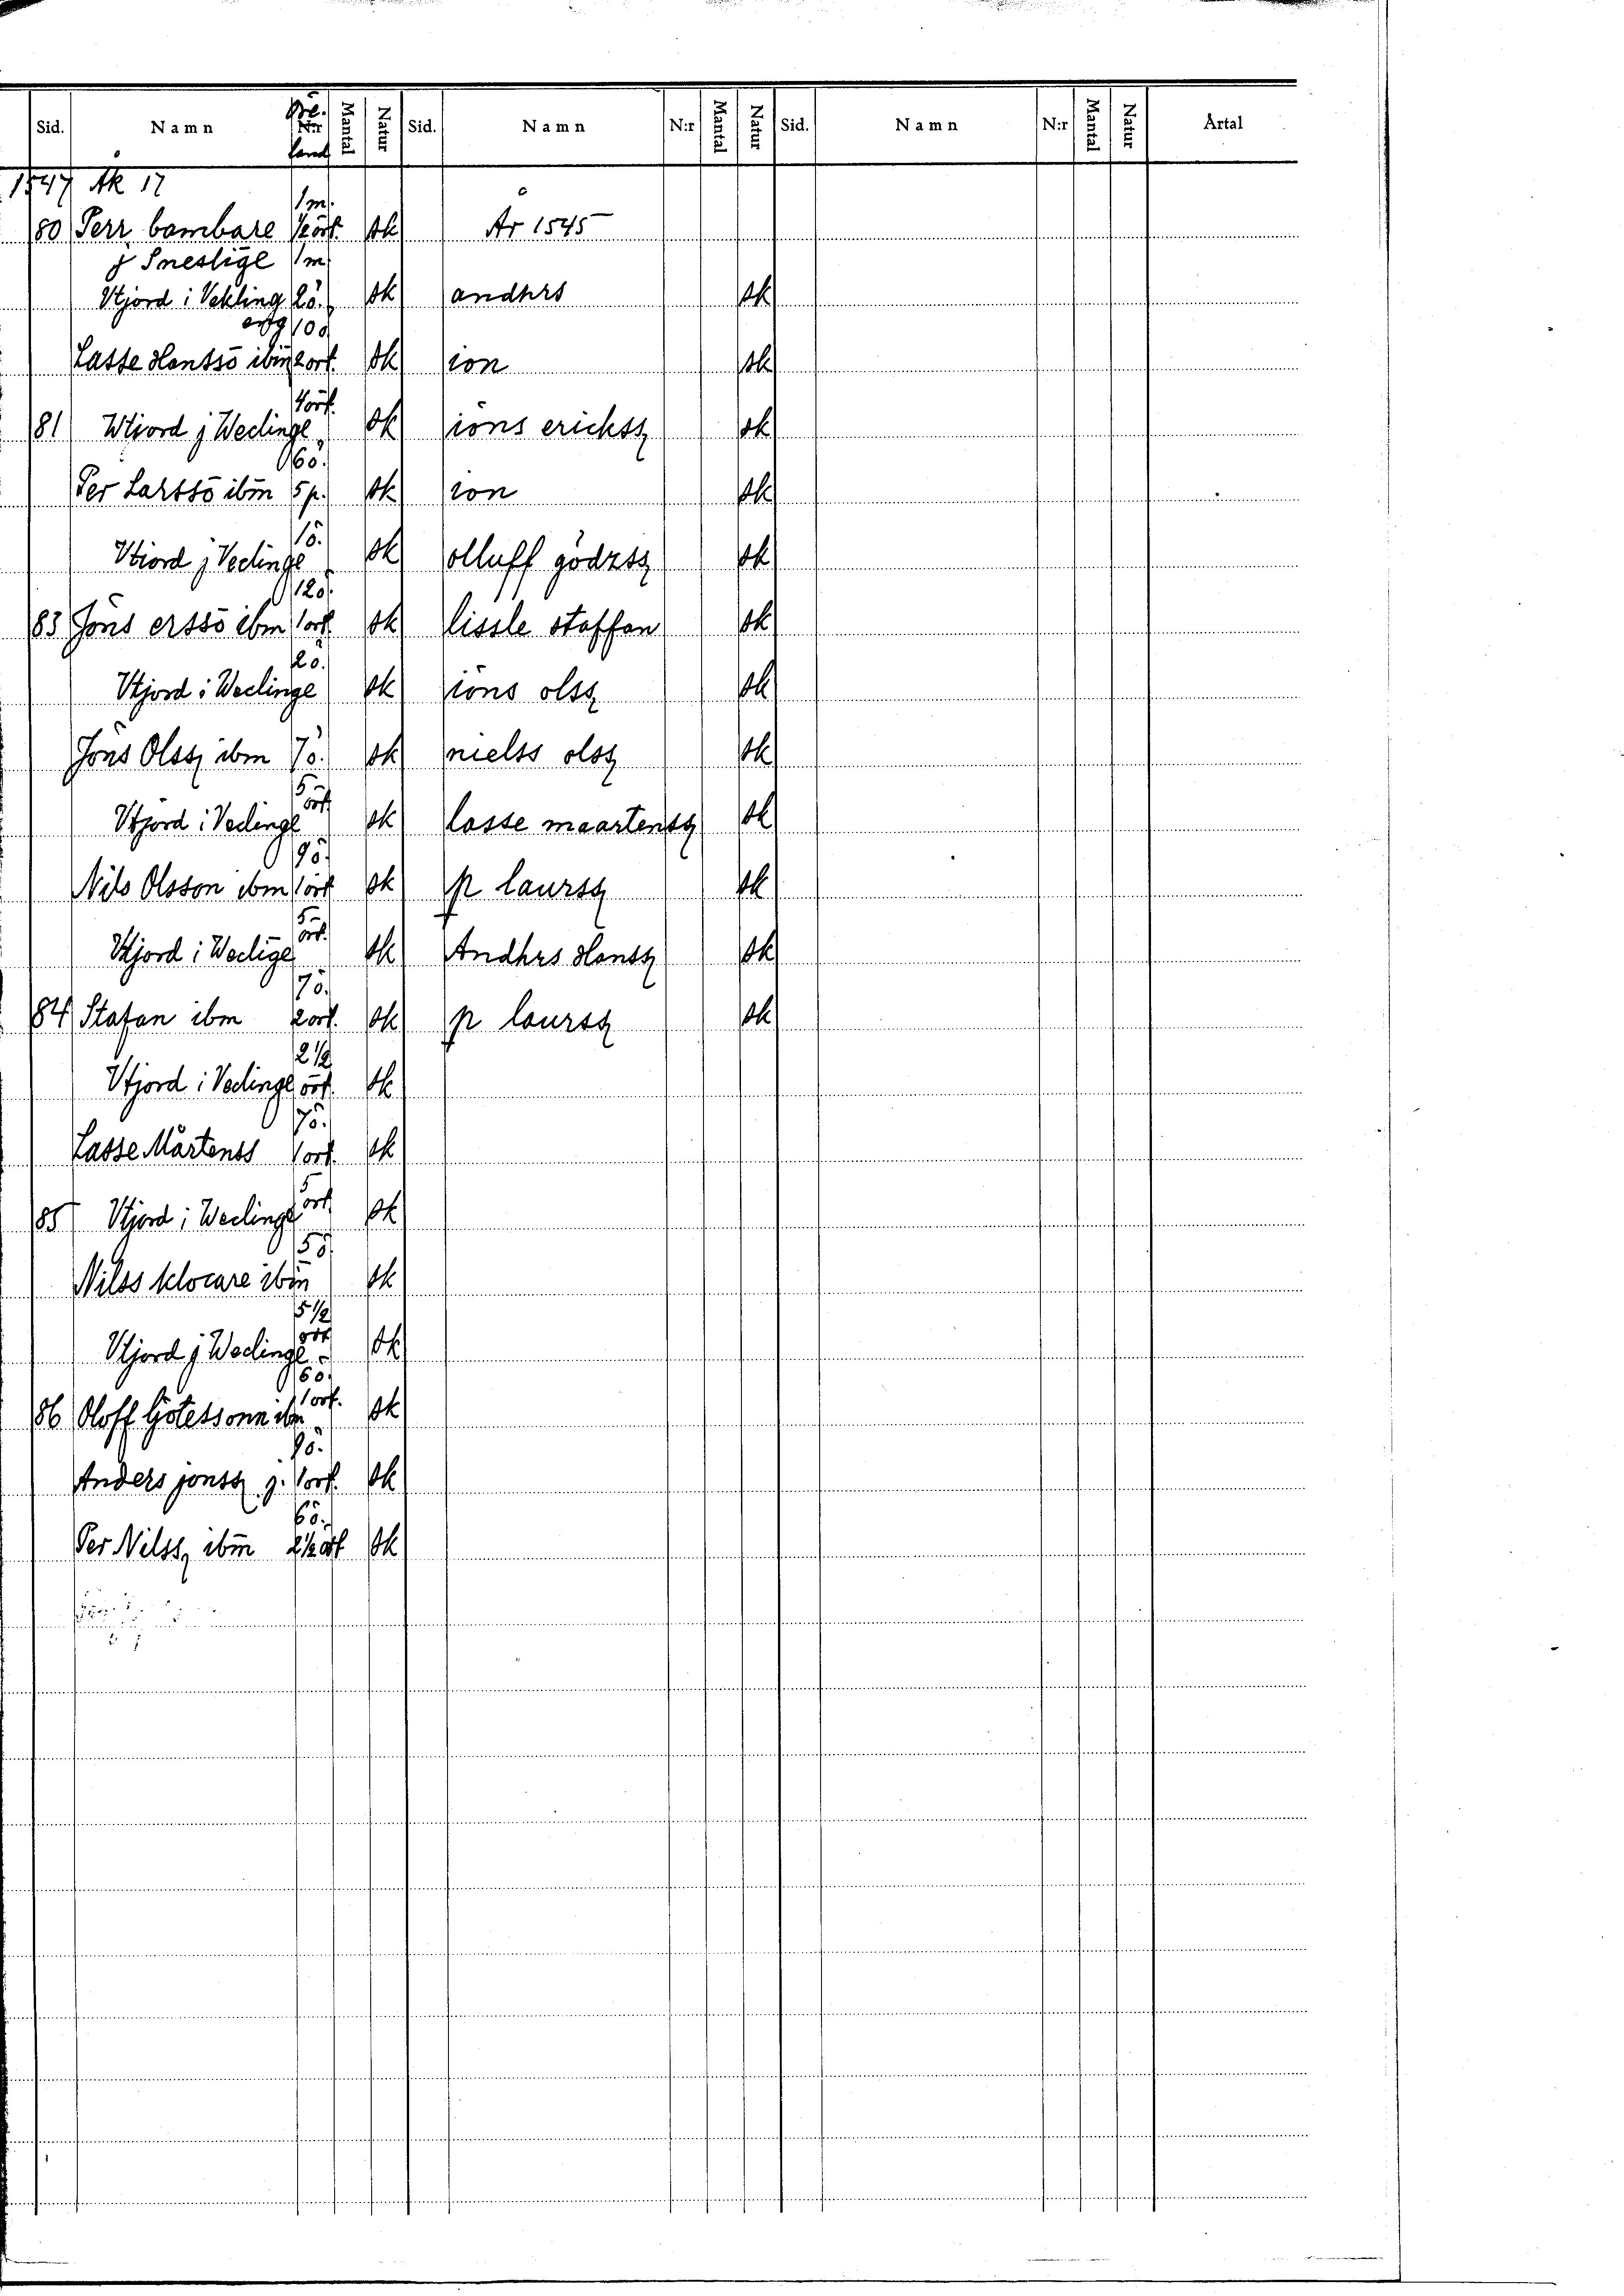 Sid. Namn Öre. N:r land Mantal Natur Sid. Namn N:r Mantal Natur Sid. Namn N:r Mantal Natur Årtal
1547 Åk 17
1 m.
80 Perr bambare ½ört. sk År 1545
j Sneslige 1 m.
Utjord i Vekling 2ö. sk andhrs sk
ertg 10ö
Lasse Hanssō ibm 2ort. sk ion sk
4ört.
81 Wtiord j Wedinge sk iöns erickss sk
6ö.
Per Larssō ibm 5 p. sk ion sk
1ö.
Vtiord j Vedinge sk olluff gödzss sk
12ö.
83 Jöns erssō ibm 1ort. sk lissle staffan sk
2ö.
Vtjord i Wedinge sk iöns olss sk
Jöns Olss ibm 7ö. sk nielss olss sk
5 ört
Vtjord i Vedinge sk lasse maartenss sk
9ö.
Nils Olsson ibm 1ört sk p laurss sk
5 ort.
Utjord i Wedige sk Andhrs Hanss sk
7ö.
84 Stafan ibm 2ort. sk p laurss sk
2½
Vtjord i Vedinge ört. sk
7ö.
Lasse Mårtenss 1ort. sk
5 ort
85 Vtjord i Wedinge sk
5ö
Nilss klocare ibm sk
5½ ort
Utjord j Wedinge sk
6ö.
86 Oloff Götessonn ibm 1ort. sk
9ö.
Anders jonss j. 1ort. sk
6ö.
Per Nilss ibm 2½ört sk